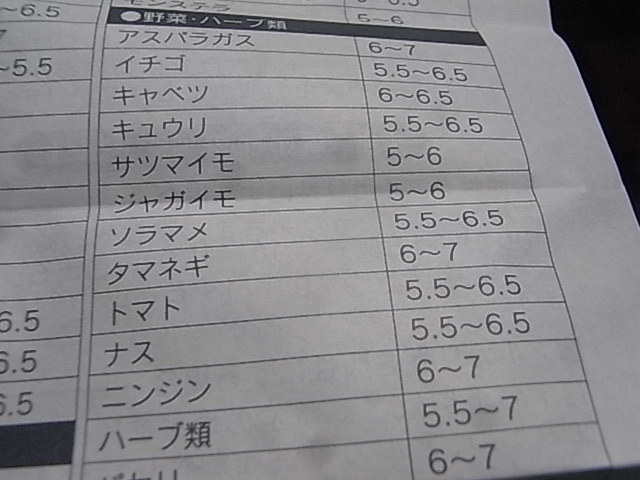 ~6.5
7
~5.5
6.5
6.5
6.5
モンステラ 5~6
●野菜・ハーブ類
アスパラガス 6~7
イチゴ 5.5~6.5
キャベツ 6~6.5
キュウリ 5.5~6.5
サツマイモ 5~6
ジャガイモ 5~6
ソラマメ 5.5~6.5
タマネギ 6~7
トマト 5.5~6.5
ナス 5.5~6.5
ニンジン 6~7
ハーブ類 5.5~7
パセリ 6~7